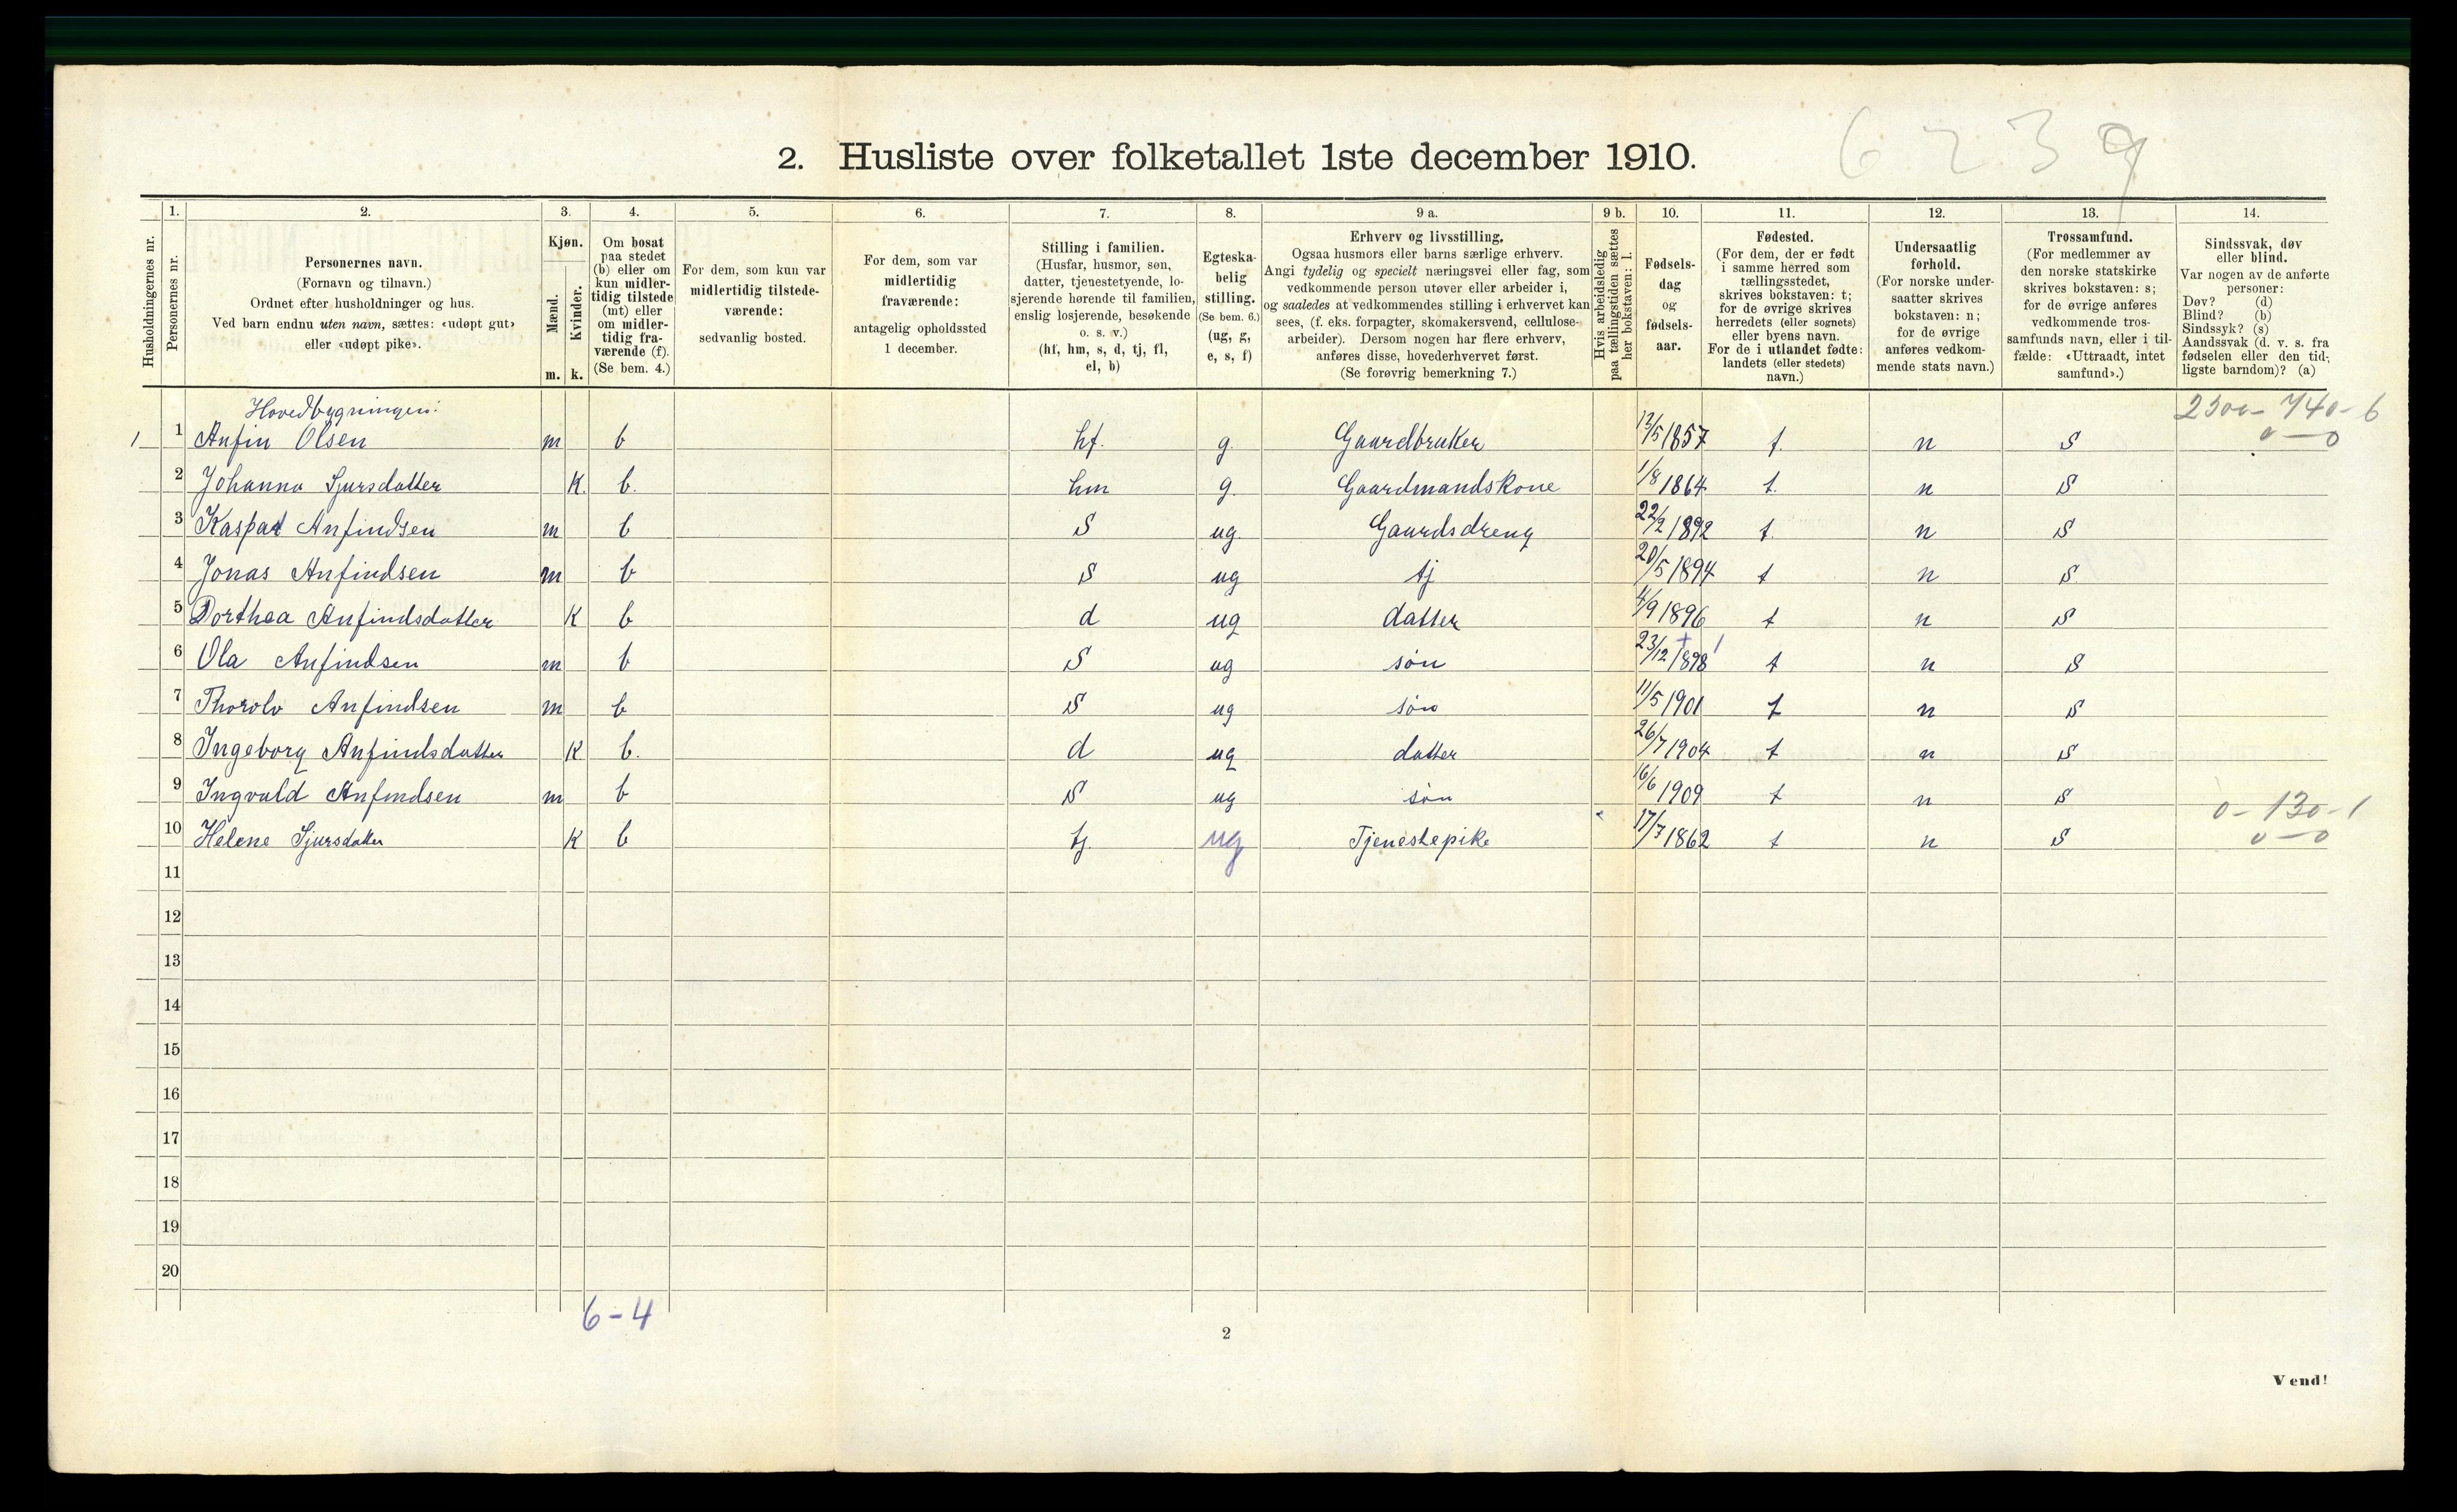 6239
2. Husliste over folketallet 1ste december 1910.
Husholdningernes nr.
1. Personernes nr.
2. Personernes navn. (Fornavn og tilnavn.) Ordnet efter husholdninger og hus. Ved barn endnu uten navn, sættes: «udøpt gut» eller «udøpt pike».
3. Kjøn. Mænd. m. Kvinder. k.
4. Om bosat paa stedet (b) eller om kun midlertidig tilstede (mt) eller om midlertidig fraværende (f). (Se bem. 4.)
5. For dem, som kun var midlertidig tilstedeværende: sedvanlig bosted.
6. For dem, som var midlertidig fraværende: antagelig opholdssted 1 december.
7. Stilling i familien. (Husfar, husmor, søn, datter, tjenestetyende, losjerende hørende til familien, enslig losjerende, besøkende o. s. v.) (hf, hm, s, d, tj, fl, el, b)
8. Egteskabelig stilling. (Se bem. 6.) (ug, g, e, s, f)
9 a. Erhverv og livsstilling. Ogsaa husmors eller barns særlige erhverv. Angi tydelig og specielt næringsvei eller fag, som vedkommende person utøver eller arbeider i, og saaledes at vedkommendes stilling i erhvervet kan sees, (f. eks. forpagter, skomakersvend, cellulosearbeider). Dersom nogen har flere erhverv, anføres disse, hovederhvervet først. (Se forøvrig bemerkning 7.)
9 b. Hvis arbeidsledig paa tællingstiden sættes her bokstaven: l.
10. Fødselsdag og fødselsaar.
11. Fødested. (For dem, der er født i samme herred som tællingsstedet, skrives bokstaven: t; for de øvrige skrives herredets (eller sognets) eller byens navn. For de i utlandet fødte: landets (eller stedets) navn.)
12. Undersaatlig forhold. (For norske undersaatter skrives bokstaven: n; for de øvrige anføres vedkommende stats navn.)
13. Trossamfund. (For medlemmer av den norske statskirke skrives bokstaven: s; for de øvrige anføres vedkommende trossamfunds navn, eller i tilfælde: «Uttraadt, intet samfund».)
14. Sindssvak, døv eller blind. Var nogen av de anførte personer: Døv? (d) Blind? (b) Sindssyk? (s) Aandssvak (d. v. s. fra fødselen eller den tidligste barndom)? (a)
Hovedbygningen: 2300 - 740 - 6
1 1 Anfin Olsen m b hf. g. Gaardbruker 13/5 1857 t. n S 0 - 0
2 Johanna Sjursdatter K. b. hm g. Gaardmandskone 1/8 1864 t. n S
3 Kaspar Anfindsen m b S ug Gaardsdreng 22/2 1892 t. n S
4 Jonas Anfindsen m b S ug tj 20/5 1894 t n S
5 Dorthea Anfindsdatter K b d ug datter 4/9 1896 t n S
6 Ola Anfindsen m b S ug søn 23/12 1898 t n S
7 Thorolv Anfindsen m b S ug søn 11/5 1901 t n S
8 Ingeborg Anfindsdatter K b. d ug datter 26/7 1904 t n S
9 Ingvald Anfindsen m b S ug søn 16/6 1909 t n S 0 - 130 - 1
10 Helene Sjursdatter K b tj. ug Tjenestepike 17/7 1862 t n S 0 - 0
11
12
13
14
15
16
17
18
19
20
6 - 4
2
Vend!